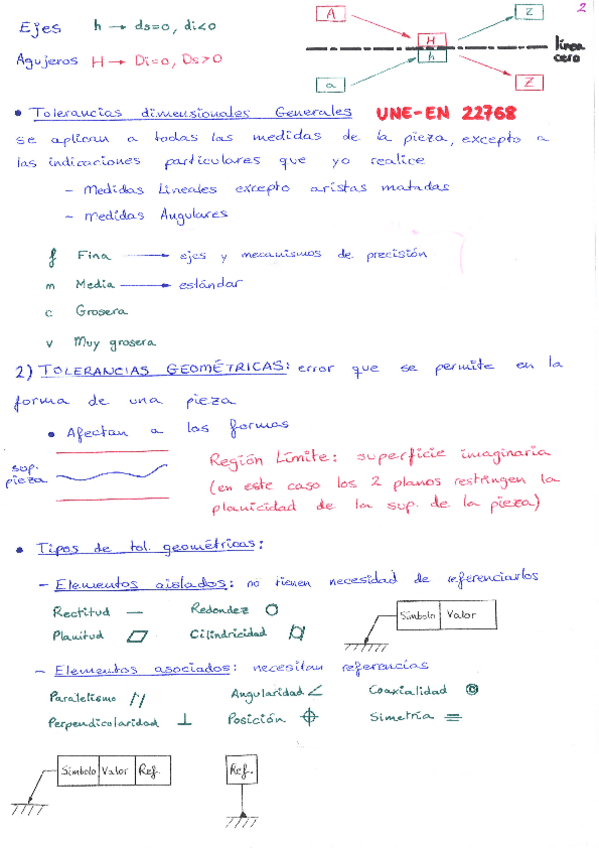 2
Ejes h → ds=0, di<0
Agujeros H → Di=0, Ds>0
A
z
H
h
línea
cero
a
Z
• Tolerancias dimensionales Generales UNE-EN 22768
se aplican a todas las medidas de la pieza, excepto a
las indicaciones particulares que yo realice
- Medidas Lineales excepto aristas matadas
- Medidas Angulares
f Fina → ejes y mecanismos de precisión
m Media → estándar
c Grosera
v Muy grosera
2) TOLERANCIAS GEOMÉTRICAS: error que se permite en la
forma de una pieza
• Afectan a las formas
sup.
pieza
Región Límite: superficie imaginaria
(en este caso los 2 planos restringen la
planicidad de la sup. de la pieza)
• Tipos de tol. geométricas:
- Elementos aislados: no tienen necesidad de referenciarlos
Rectitud — Redondez ○
Planitud ▱ Cilindricidad ⌭
Símbolo Valor
- Elementos asociados: necesitan referencias
Paralelismo // Angularidad ∠ Coaxialidad ◎
Perpendicolaridad ⊥ Posición ⌖ Simetría ⌯
Símbolo Valor Ref.
Ref.